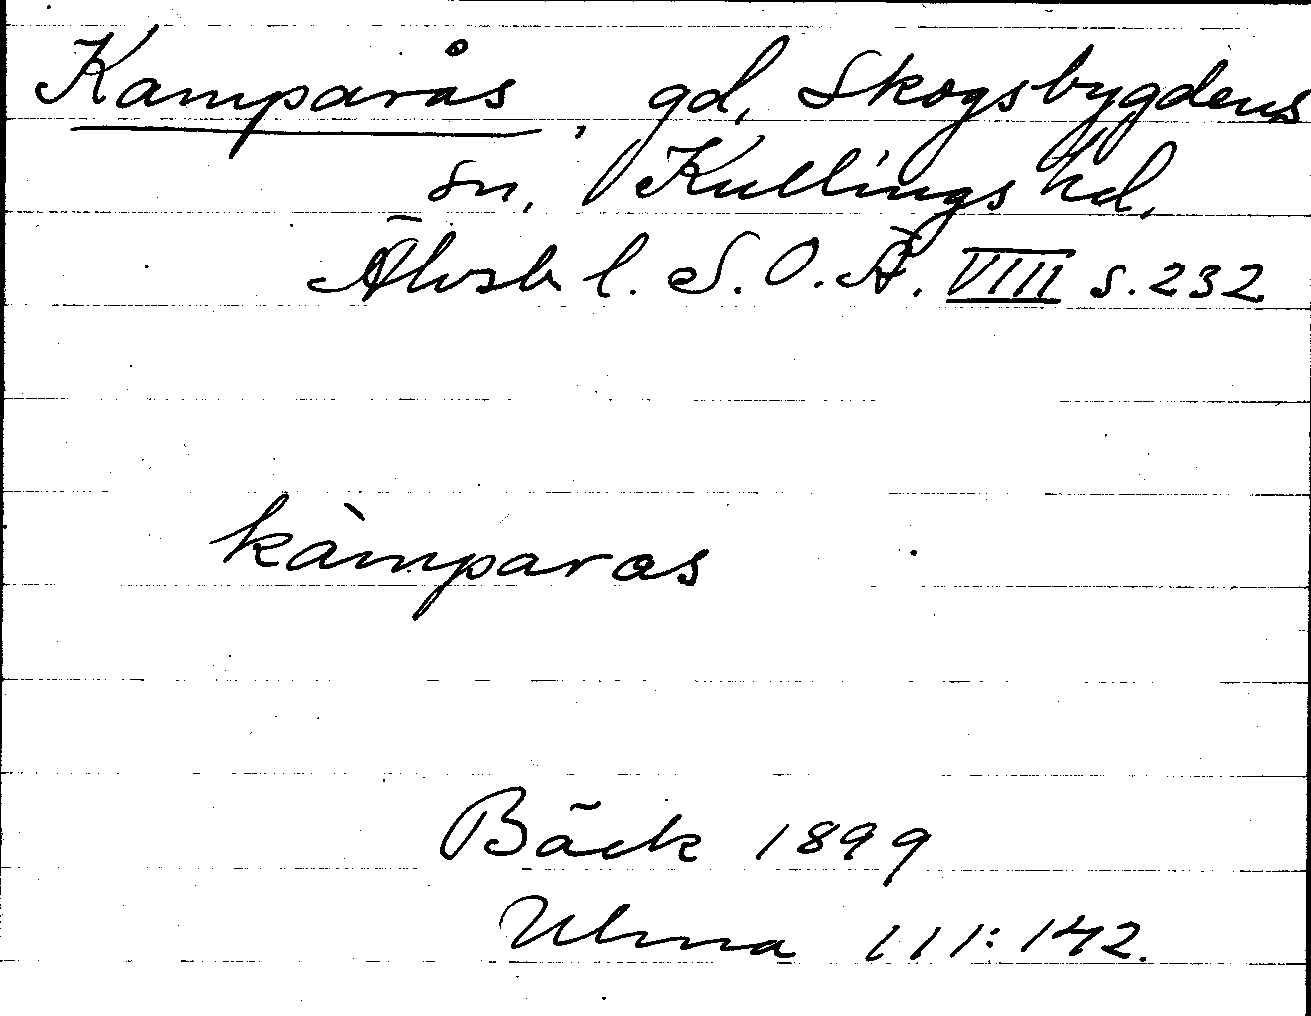 Kamparås, gd, Skogsbygdens
sn, Kullings hd,
Älvsb l. S. O. Ä. VIII s. 232
kàmparas
Bäck 1899
Ulma 111:142.